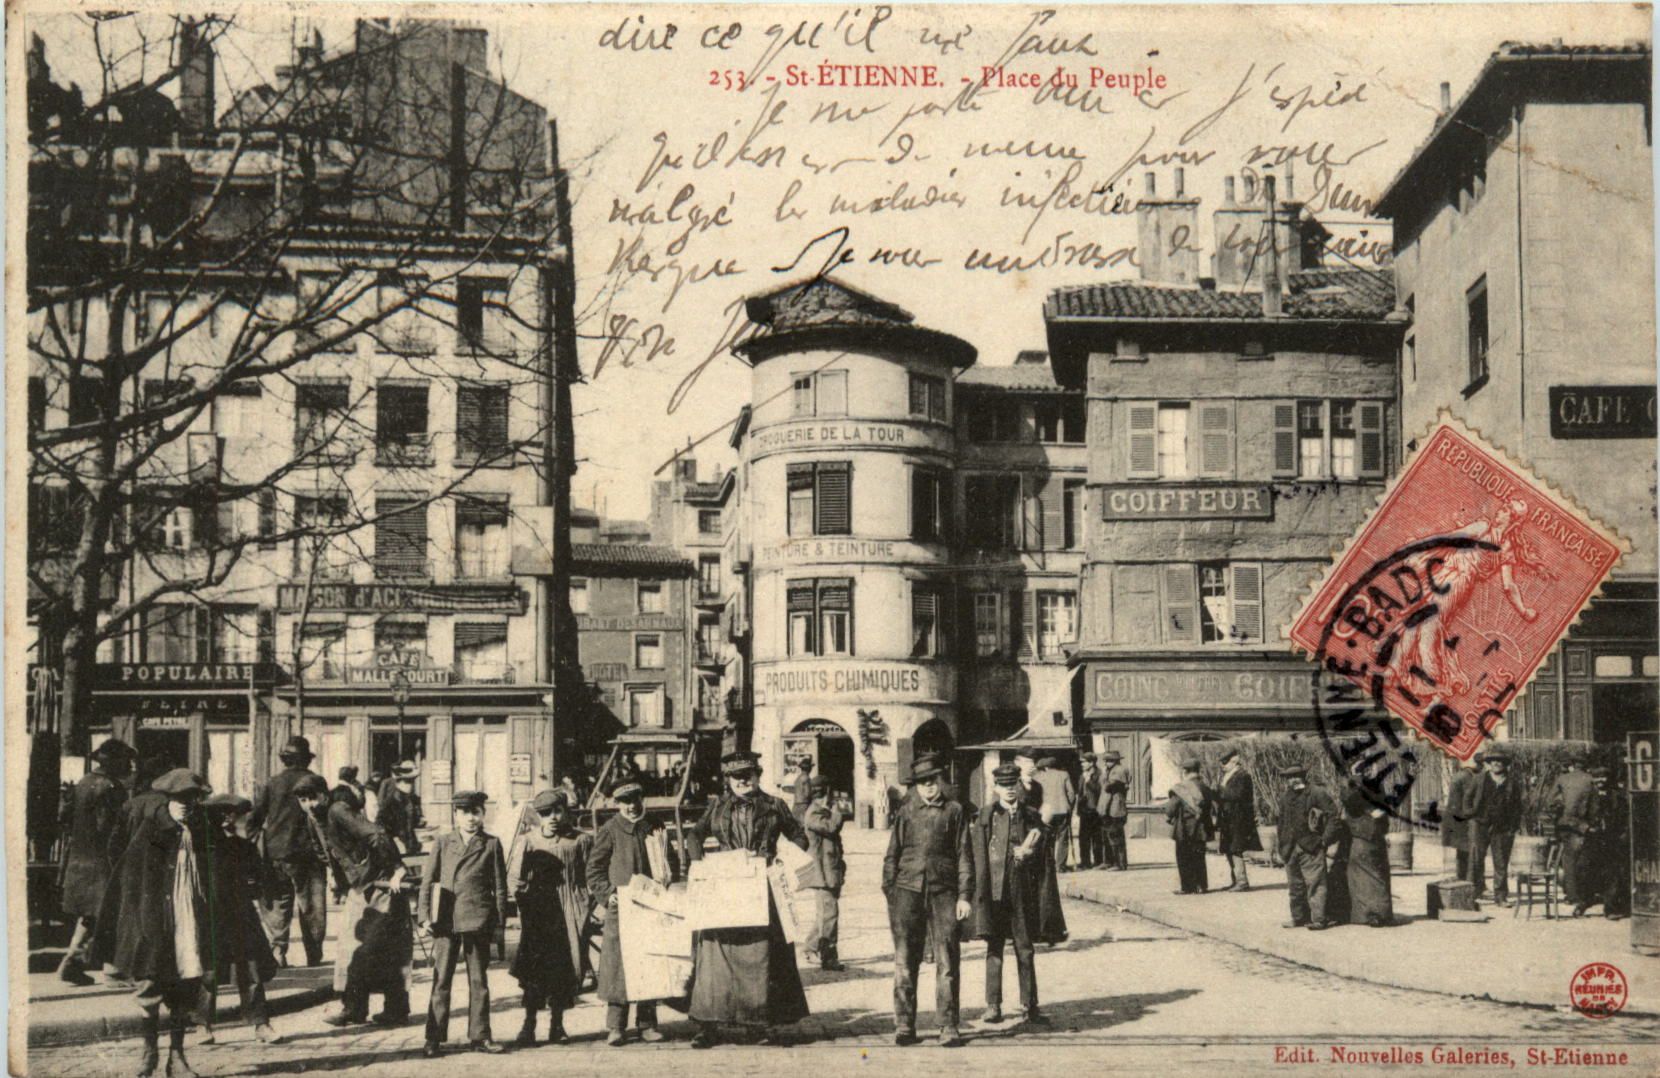 dire ce qu'il me faut
253. - St-ÉTIENNE. - Place du Peuple
Je me porte bien et j'espère
qu'il en est de meme pour vous
malgré les maladies infectieuses de Dun
kerque Je vous embrasse de tout
Ton
DROGUERIE DE LA TOUR
CAFE
COIFFEUR
PEINTURE & TEINTURE
MAISON d'ACCOUCHEMENTS
HOTEL
POPULAIRE
CAFÉ
MALLECOURT
PRODUITS CHIMIQUES
COING COIF
RÉPUBLIQUE FRANÇAISE
POSTES
10
ETIENNE-BADO
IMPR.
REUNIES
DE
NANCY
Edit. Nouvelles Galeries, St-Etienne